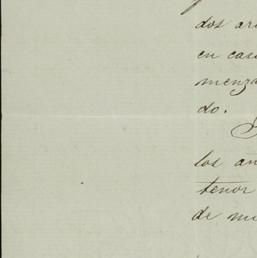 dos ar
en cas
menza
do.
los an
tenor
de mi